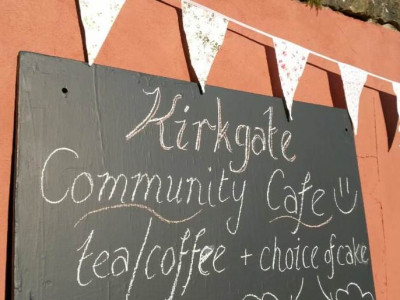 Kirkgate
Community Cafe
tea/coffee + choice of cake